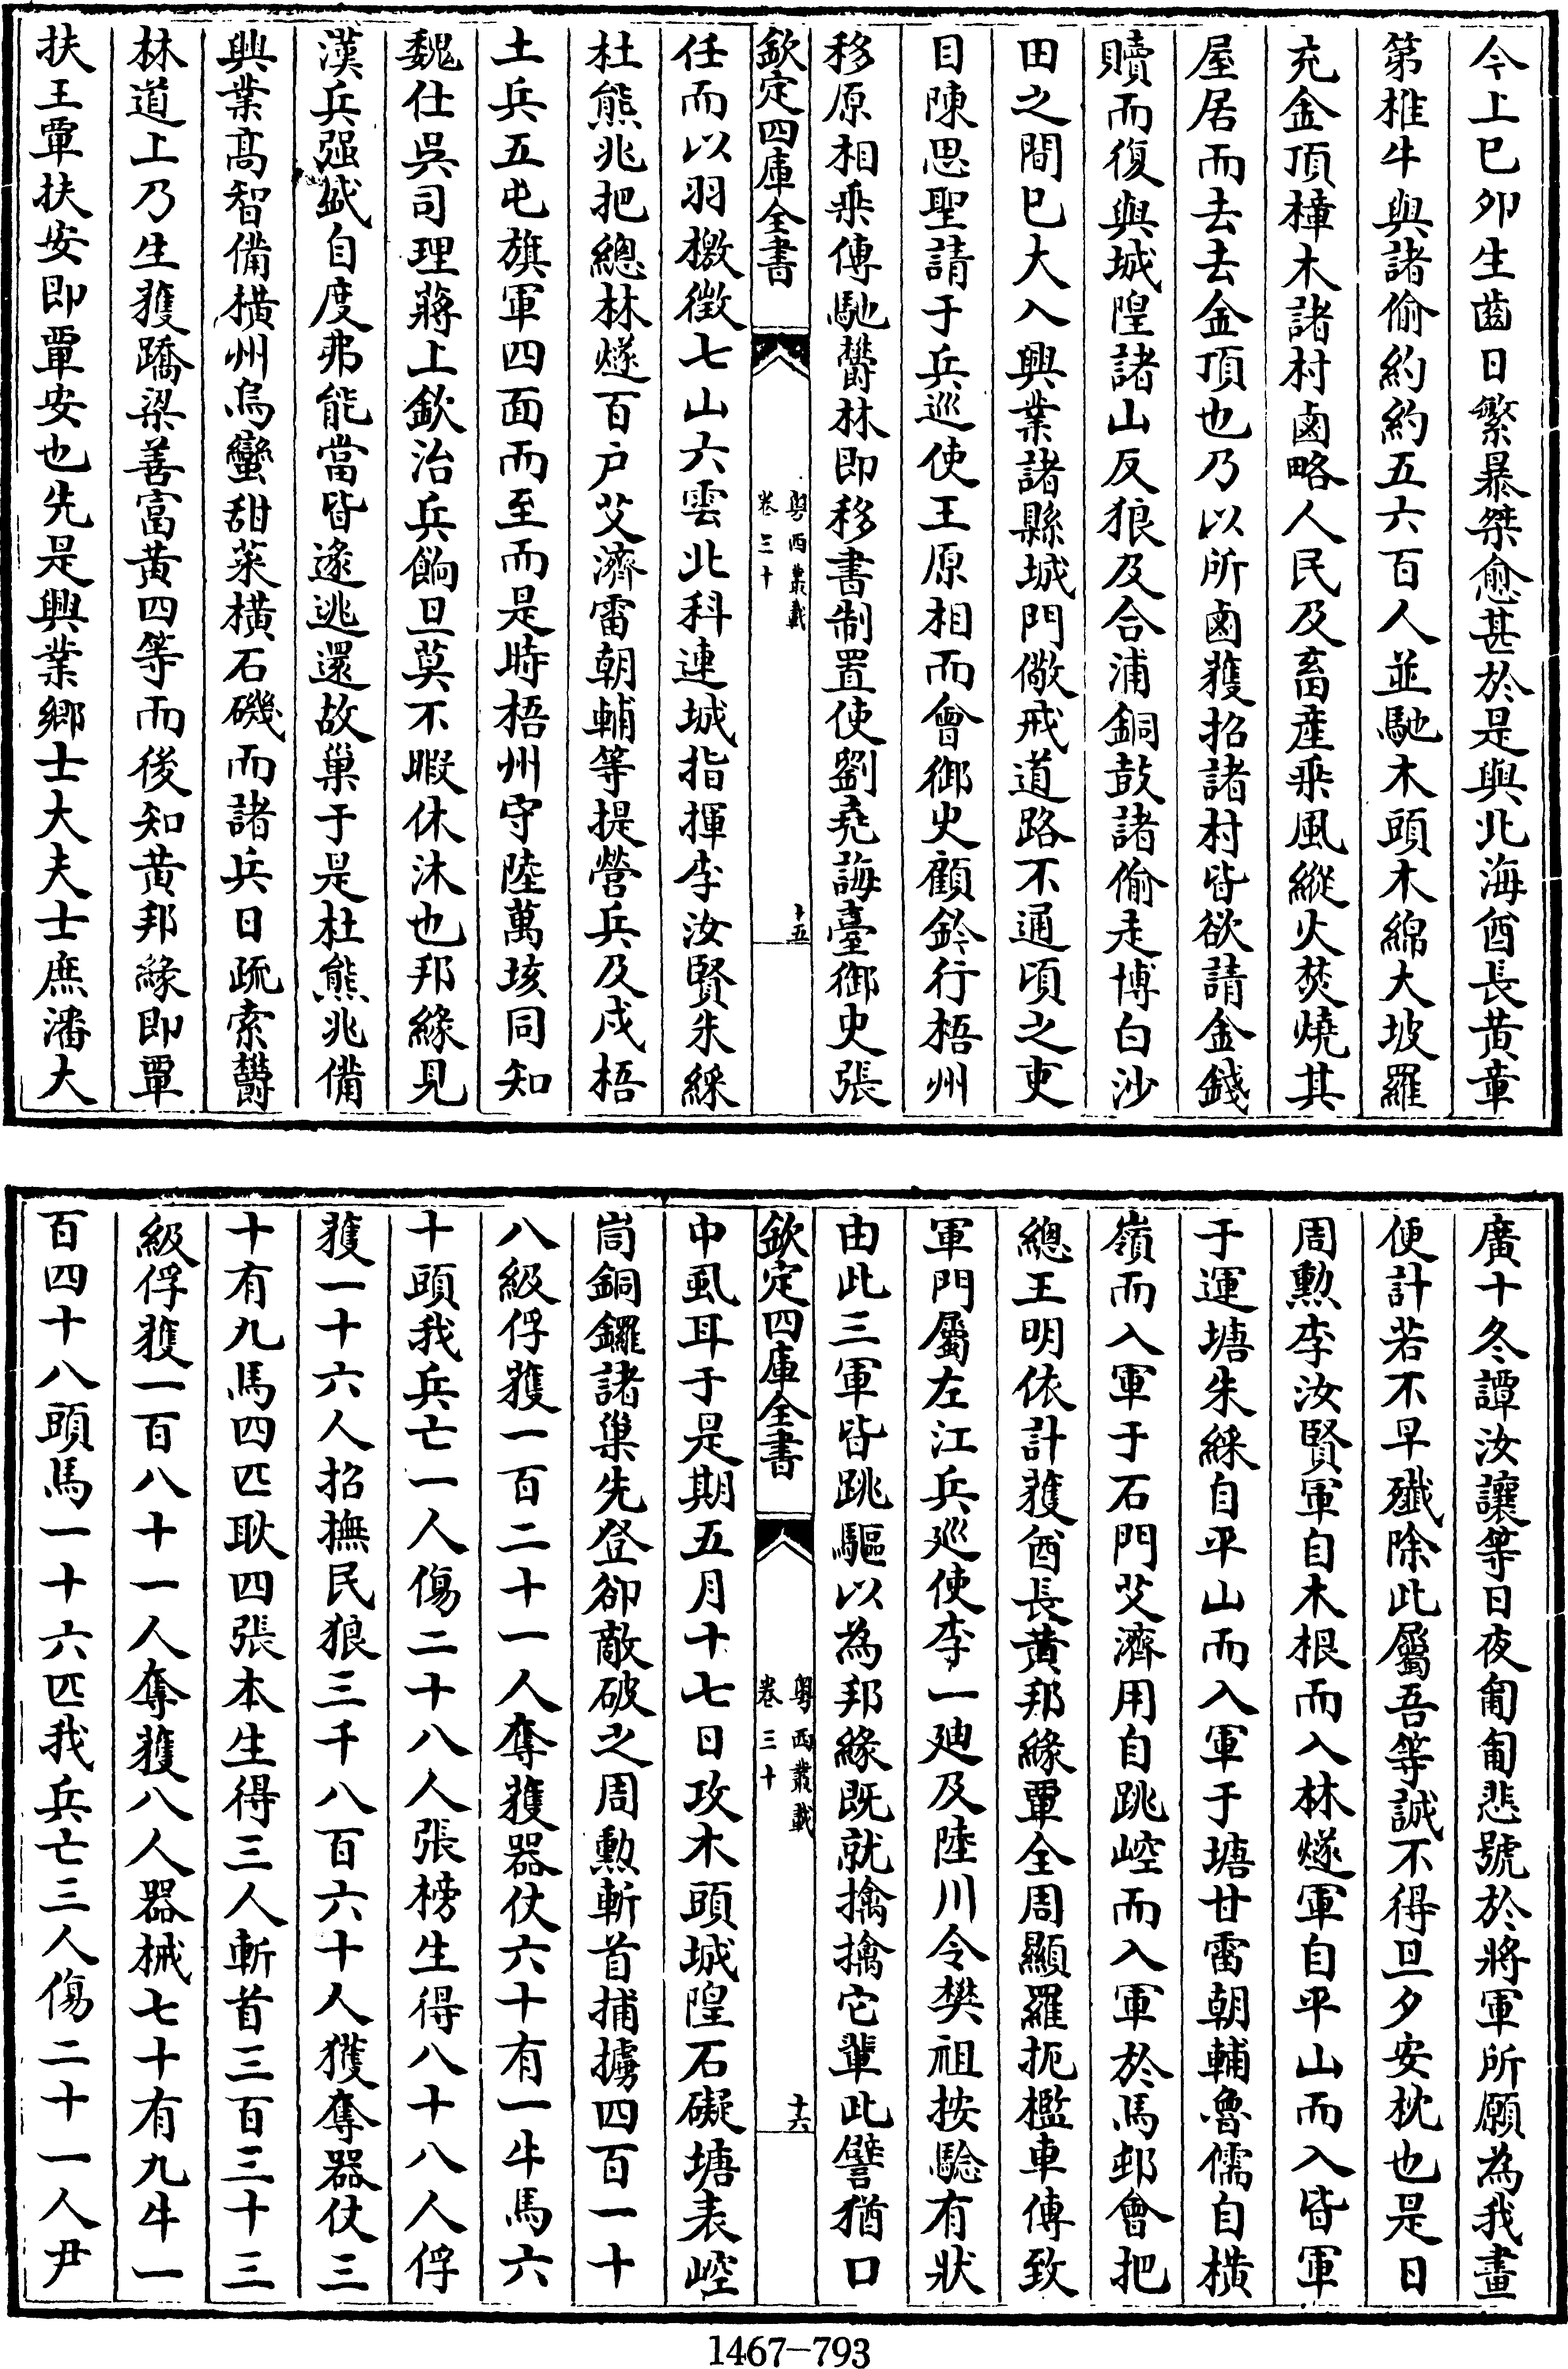 今上已卯生齒日繁暴桀愈甚於是與北海酋長黃章
第椎牛與諸偷約約五六百人並馳木頭木綿大坡羅
充金頂樟木諸村鹵略人民及畜產乘風縱火焚燒其
屋居而去去金頂也乃以所鹵獲招諸村皆欲請金錢
贖而復與城隍諸山反狼及合浦銅鼓諸偷走博白沙
田之間已大入興業諸縣城門儆戒道路不通頃之吏
目陳思聖請于兵巡使王原相而會御史顧鈐行梧州
移原相乘傳馳鬱林即移書制置使劉堯誨臺御史張
欽定四庫全書
粵西叢載
卷三十
十五
任而以羽檄徴七山六雲北科連城指揮李汝賢朱綵
杜熊兆把總林燧百戶艾濟雷朝輔等提營兵及戍梧
土兵五屯旗軍四面而至而是時梧州守陸萬垓同知
魏仕吳司理蔣上欽治兵餉旦莫不暇休沐也邦緣見
漢兵强盛自度弗能當皆遂逃還故巢于是杜熊兆備
興業髙智備橫州烏蠻甜菜橫石磯而諸兵日疏索鬱
林道上乃生獲蹻梁善富黃四等而後知黃邦緣即覃
扶王覃扶安即覃安也先是興業鄉士大夫士庶潘大
廣十冬譚汝讓等日夜匍匐悲號於將軍所願為我畫
便計若不早殲除此屬吾等誠不得旦夕安枕也是日
周勲李汝賢軍自木根而入林燧軍自平山而入皆軍
于運塘朱綵自平山而入軍于塘甘雷朝輔魯儒自橫
嶺而入軍于石門艾濟用自跳崆而入軍於馬邨會把
總王明依計獲酋長黃邦緣覃全周顯羅扼檻車傳致
軍門屬左江兵廵使李一廸及陸川令樊祖按驗有狀
由此三軍皆跳驅以為邦緣既就擒擒它輩此譬猶口
欽定四庫全書
粵西叢載
卷三十
十六
中虱耳于是期五月十七日攻木頭城隍石礙塘表崆
峝銅鑼諸巢先登卻敵破之周勲斬首捕擄四百一十
八級俘獲一百二十一人奪獲器仗六十有一牛馬六
十頭我兵亡一人傷二十八人張榜生得八十八人俘
獲一十六人招撫民狼三千八百六十人獲奪器仗三
十有九馬四匹耿四張本生得三人斬首三百三十三
級俘獲一百八十一人奪獲八人器械七十有九牛一
百四十八頭馬一十六匹我兵亡三人傷二十一人尹
1467-793